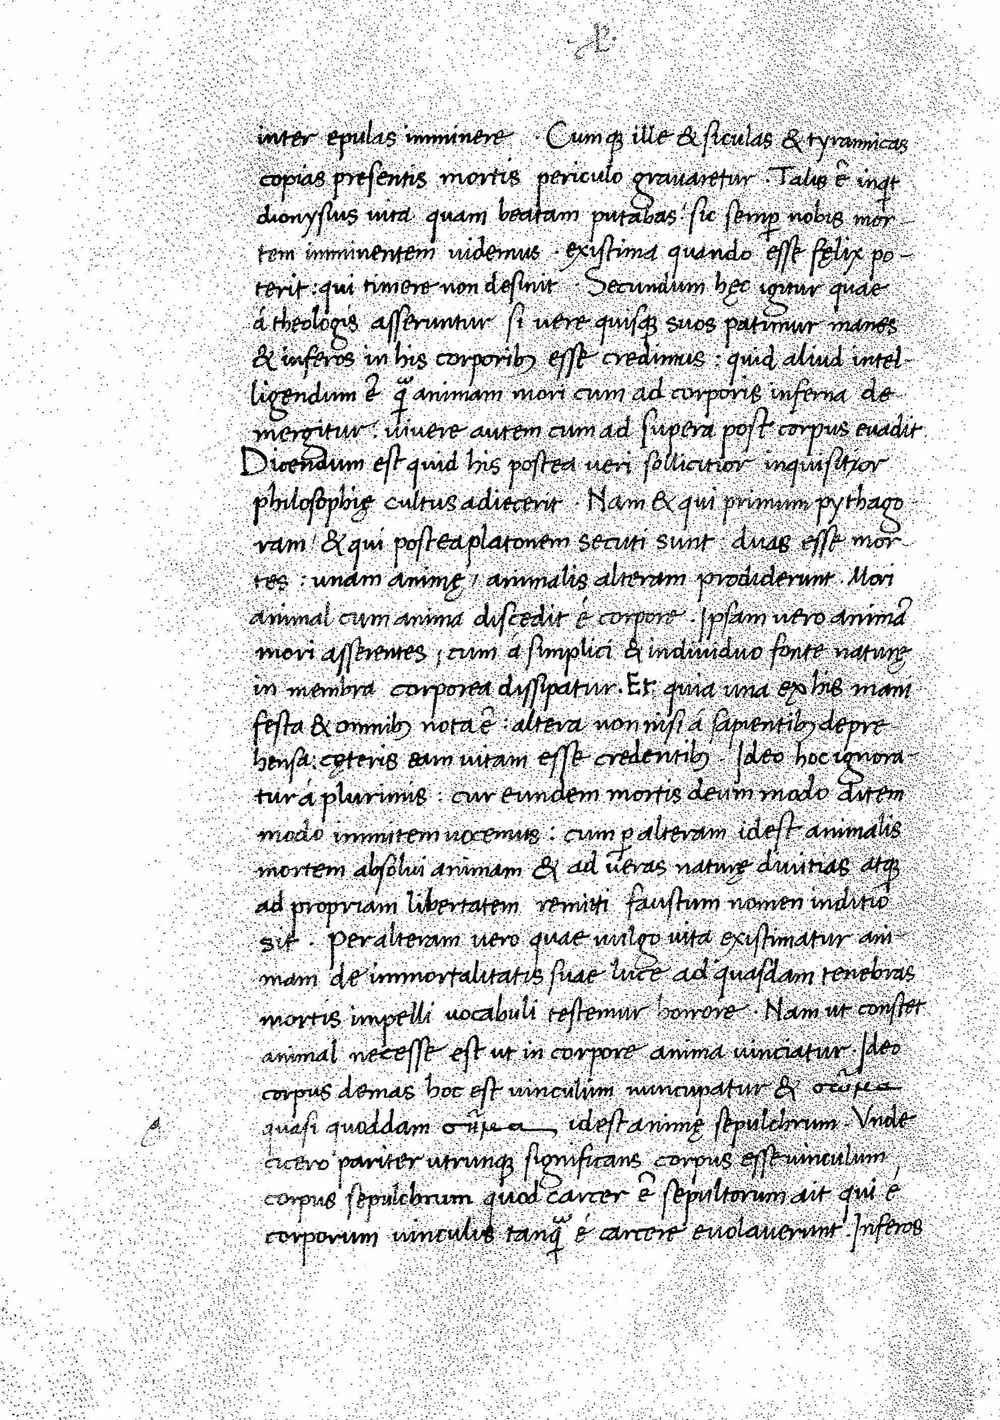 inter epulas imminere · Cumqꝫ ille & siculas & tyrannicas
copias presentis mortis periculo grauaretur · Talis ē inqt
dionysius uita quam beatam putabas : sic semꝑ nobis mor-
tem imminentem uidemus · existima quando esse fęlix po-
terit : qui timere non desinit · Secundum hęc igitur quae
á theologis asseruntur si uere quisqꝫ suos patimur manes
& inferos in his corporibꝫ esse credimus : quid aliud intel-
ligendum ē quā animam mori cum ad corporis inferna de
mergitur : uiuere autem cum ad supera post corpus euadit
Dicendum est quid his postea ueri sollicitior inquisitior
philosophię cultus adiecerit · Nam & qui primum pythago
ram / & qui postea platonem secuti sunt duas esse mor-
tes : unam animę / animalis alteram prodiderunt · Mori
animal cum anima discedit é corpore · Ipsam uero animā
mori asserentes , cum á simplici & indiuiduo fonte naturę
in membra corporea dissipatur . Et quia una ex his mani
festa & omnibꝫ nota ē : altera non nisi á sapientibꝫ depre
hensa : cęteris eam uitam esse credentibꝫ · Ideo hoc ignora-
tur á plurimis : cur eundem mortis deum modo ditem
modo immitem uocemus : cum ꝑ alteram idest animalis
mortem absolui animam & ad ūeras naturę diuitias atqꝫ
ad propriam libertatem remitti faustum nomen inditio
sit · Per alteram uero quae uulgo uita existimatur ani-
mam de immortalitatis suae luce ad quasdam tenebras
mortis impelli uocabuli testemur horrore · Nam ut constet
animal necesse est ut in corpore anima uinciatur · Ideo
corpus demas hoc est uinculum nuncupatur & σῶμα
quasi quoddam σῆμα idest animę sepulchrum · Vnde
cicero pariter utrunqꝫ significans corpus esse uinculum
corpus sepulchrum quod carcer ē sepultorum ait qui e
corporum uinculis tanqā é carcere euolauerunt · Inferos